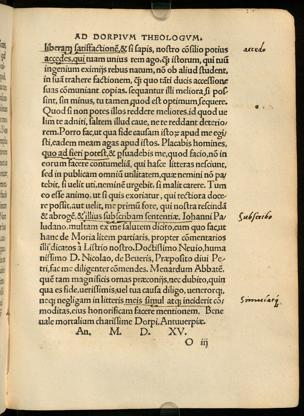 AD DORPIVM THEOLOGVM.
liberam satisfactionē, & si sapis, nostro cōsilio potius
accedes, qui tuam unius rem ago, q̄ istorum, qui tuū
ingenium eximijs rebus natum, nō ob aliud student,
in suā trahere factionem, q̄ quo tāti ducis accessione
suas cōmuniant copias. sequantur illi meliora, si pos
sint, sin minus, tu tamen, quod est optimum, sequere.
Quod si non potes illos reddere meliores, id quod ue
lim te adniti, saltem illud caue, ne te reddant deterio
rem. Porro fac, ut qua fide causam istorū apud me egi
sti, eadem meam agas apud istos. Placabis homines,
quo ad fieri potest, & persuadebis me, quod facio, nō in
eorum facere contumeliā, qui hasce litteras nesciunt,
sed in publicam omniū utilitatem, quæ nemini nō pa
tebit, si uelit uti, neminē urgebit. si malit carere. Tum
eo esse animo, ut si quis exoriatur, qui rectiora doce
re possit, aut uelit, me primū fore, qui nostra rescindā
& abrogē, & illius subscribam sententiæ. Iohanni Pa
ludano, multam ex me salutem dicito, cum quo fac ut
hanc de Moria litem partiaris, propter comentarios
illi dicatos à Listrio nostro. Doctissimo Neuio, huma
nissimo D. Nicolao, de Beueris, Præposito diui Pe
tri, fac me diligenter cōmendes. Menardum Abbatē,
quē tam magnificis ornas præconijs, nec dubito, quin
qua es fide, uerissimis, uel tua causa diligo, ueneror q̄,
neq; negligam in litteris meis simul atq; inciderit cō
moditas, eius honorificam facere mentionem. Bene
uale mortalium charissime Dorpi, Antuuerpiæ.
An. M. D. XV.
O iij
accedo
Subscribo